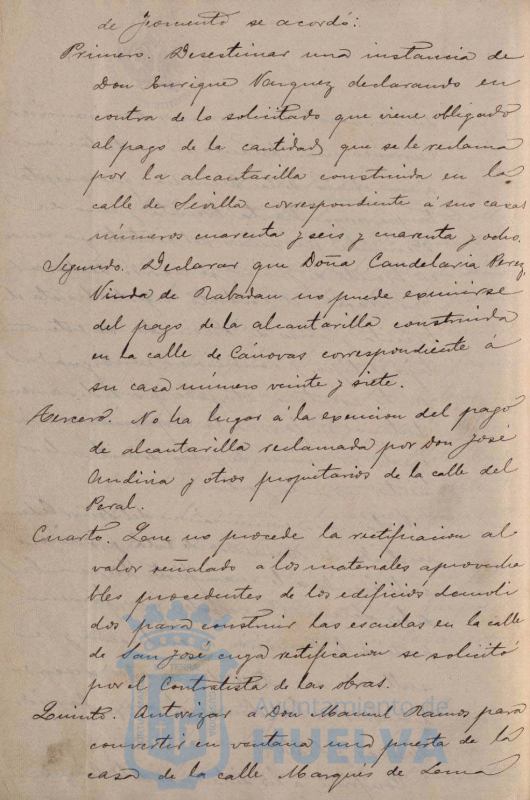 de Fomento se acordó:
Primero. Desestimar una instancia de
Don Enrique Vazquez declarando en
contra de lo solicitado que viene obligado
al pago de la cantidad que se le reclama
por la alcantarilla construida en la
calle de Sevilla correspondiente á sus casas
números cuarenta y seis y cuarenta y ocho.
Segundo. Declarar que Doña Candelaria Perez,
Viuda de Rabadan no puede eximirse
del pago de la alcantarilla construida
en la calle de Cánovas correspondiente á
su casa número veinte y siete.
Tercero. No ha lugar á la exencion del pago
de alcantarilla reclamada por Don José
y otros propietarios de la calle del
Peral.
Cuarto. Que no procede la rectificacion al
valor señalado á los materiales aprovecha
bles procedentes de los edificios demoli
dos para construir las escuelas en la calle
de San José cuya rectificacion se solicitó
por el Contratista de las obras.
Quinto. Autorizar á Don Manuel Ramos para
convertir en ventana una puerta de la
casa de la calle Marqués de Lema
Ayuntamiento de
HUELVA